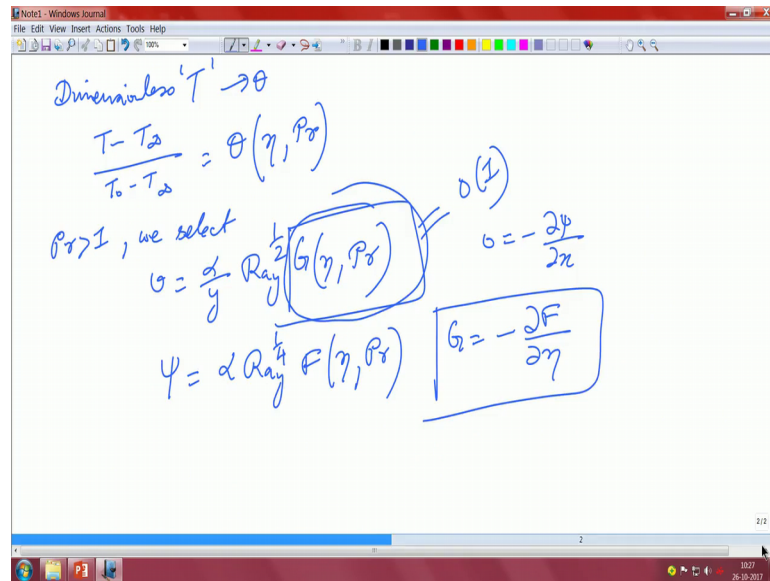 Note1 - Windows Journal
File Edit View Insert Actions Tools Help
100%
B I
Dimensionless 'T' → θ
T - T∞ / T₀ - T∞ = θ(η, Pr)
Pr > 1, we select
v = α/y Ray^1/2 G(η, Pr) O(1)
v = - ∂ψ/∂x
ψ = α Ray^1/4 F(η, Pr)
G = - ∂F/∂η
2/2
2
10:27
26-10-2017